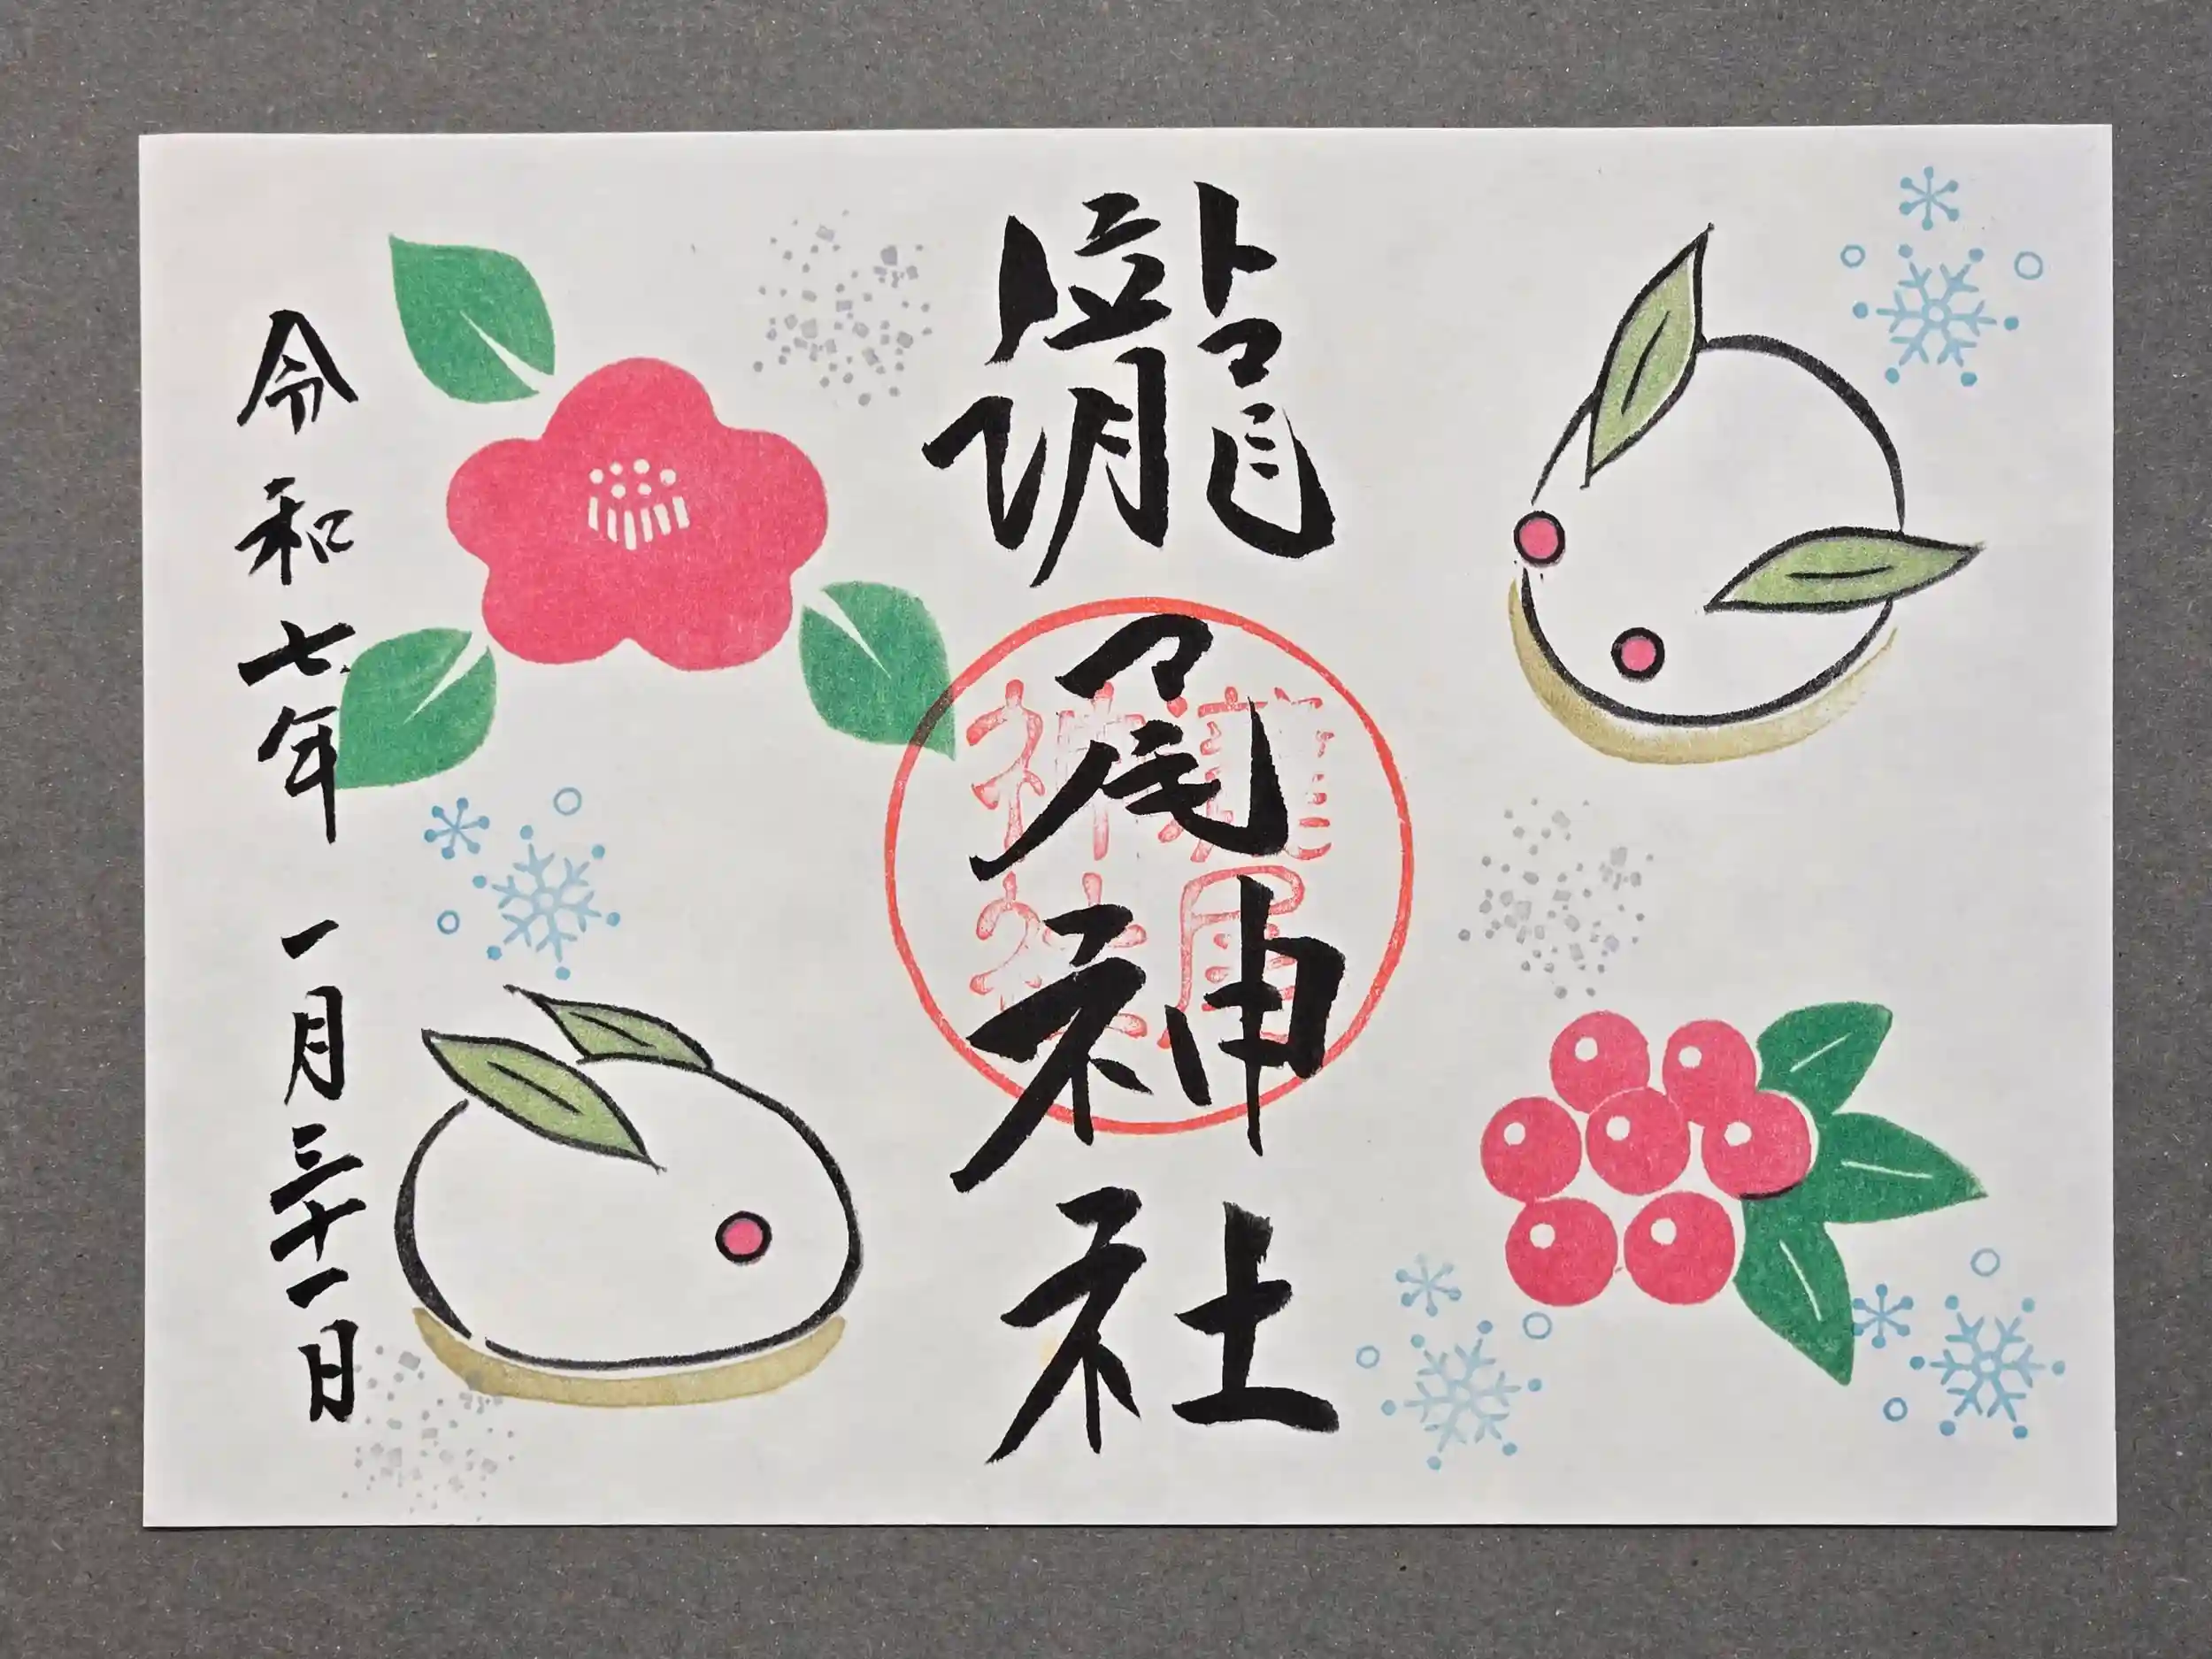 瀧尾神社
龍尾神社
令和七年 一月三十一日